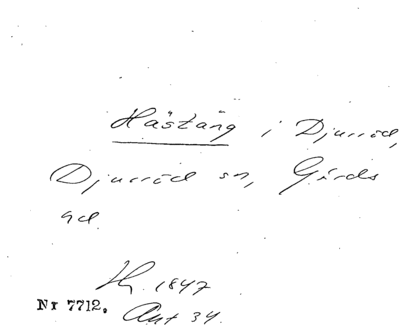 Hästäng i Djurröd,
Djurröd sn, Gärds
hd.
Hy. 1847
Nr 7712. Akt 34.